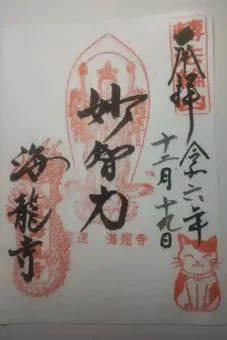 奉拝
令六年
十二月十九日
妙智力
海龍寺
海龍寺